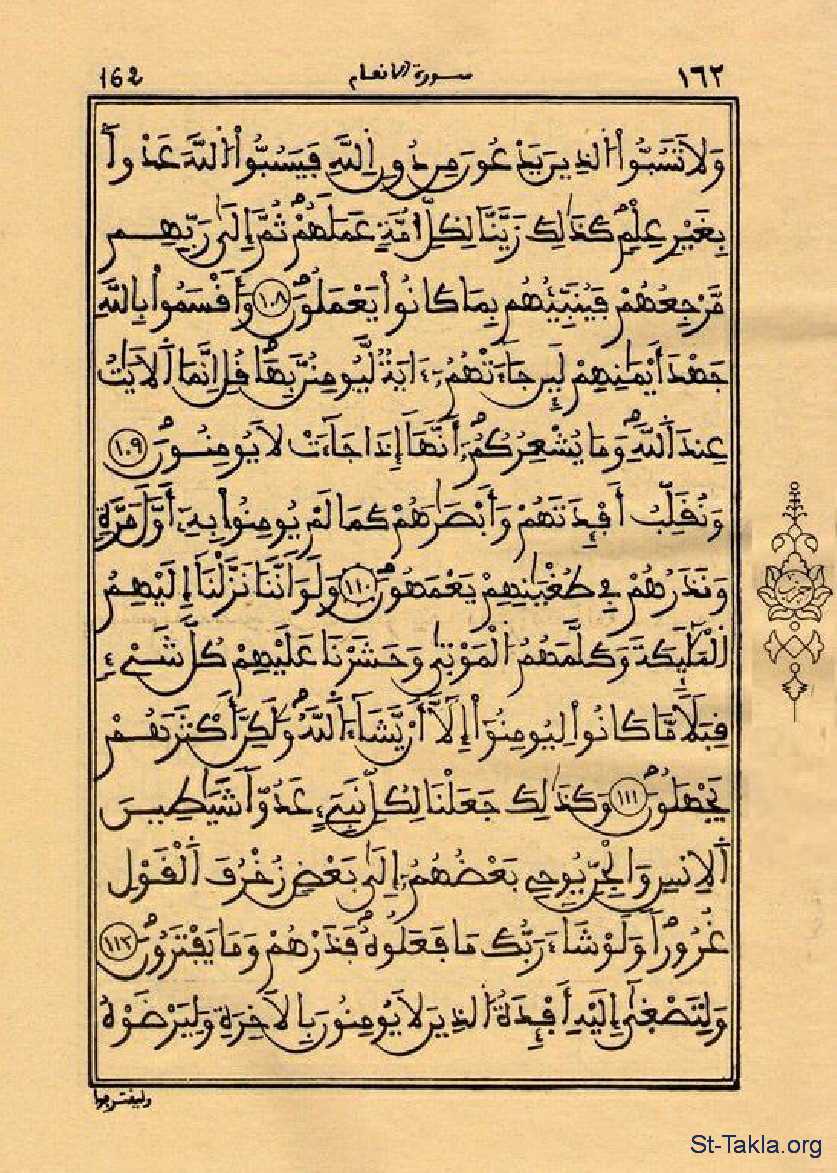 162 سورة الانعام ١٦٢
وَلَا تَسُبُّواْ الذِينَ يَدْعُونَ مِن دُونِ اِللَّهِ فَيَسُبُّواْ اللَّهَ عَدْواَۢ
بِغَيْرِ عِلْمٖ كَذَٰلِكَ زَيَّنَّا لِكُلِّ أُمَّةٍ عَمَلَهُمْ ثُمَّ إِلَىٰ رَبِّهِم
مَّرْجِعُهُمْ فَيُنَبِّئُهُم بِمَا كَانُواْ يَعْمَلُونَ ١٠٨ وَأَقْسَمُواْ بِاللَّهِ
جَهْدَ أَيْمَٰنِهِمْ لَئِن جَآءَتْهُمُۥٓ ءَايَةٞ لَّيُومِنُنَّ بِهَا قُلِ اِنَّمَا اَ۬لَايَٰتُ
عِندَ اَ۬للَّهِ وَمَا يُشْعِرُكُمُۥٓ أَنَّهَآ إِذَا جَآءَتْ لَا يُومِنُونَ ١٠٩
وَنُقَلِّبُ أَفْـِٕدَتَهُمْ وَأَبْصَٰرَهُمْ كَمَا لَمْ يُومِنُواْ بِهِۦٓ أَوَّلَ مَرَّةٖ
وَنَذَرُهُمْ فِے طُغْيَٰنِهِمْ يَعْمَهُونَ ١١٠ وَلَوَ اَنَّنَا نَزَّلْنَآ إِلَيْهِمُ
اُ۬لْمَلَٰٓئِكَةَ وَكَلَّمَهُمُ اُ۬لْمَوْتَىٰ وَحَشَرْنَا عَلَيْهِمْ كُلَّ شَےْءٖ
قِبَلاٗ مَّا كَانُواْ لِيُومِنُوٓاْ إِلَّآ أَنْ يَّشَآءَ اَ۬للَّهُ وَلَٰكِنَّ أَكْثَرَهُمْ
يَجْهَلُونَ ١١١ وَكَذَٰلِكَ جَعَلْنَا لِكُلِّ نَبِےٓءٍ عَدُوّاٗ شَيَٰطِينَ
اَ۬لِانسِ وَالْجِنِّ يُوحِے بَعْضُهُمُۥٓ إِلَىٰ بَعْضٖ زُخْرُفَ اَ۬لْقَوْلِ
غُرُوراٗ وَلَوْ شَآءَ رَبُّكَ مَا فَعَلُوهُ فَذَرْهُمْ وَمَا يَفْتَرُونَ ١١٢
وَلِتَصْغَىٰٓ إِلَيْهِ أَفْـِٕدَةُ اُ۬لذِينَ لَا يُومِنُونَ بِالَاخِرَةِ وَلِيَرْضَوْهُ
وليقترفوا
حزب
St-Takla.org